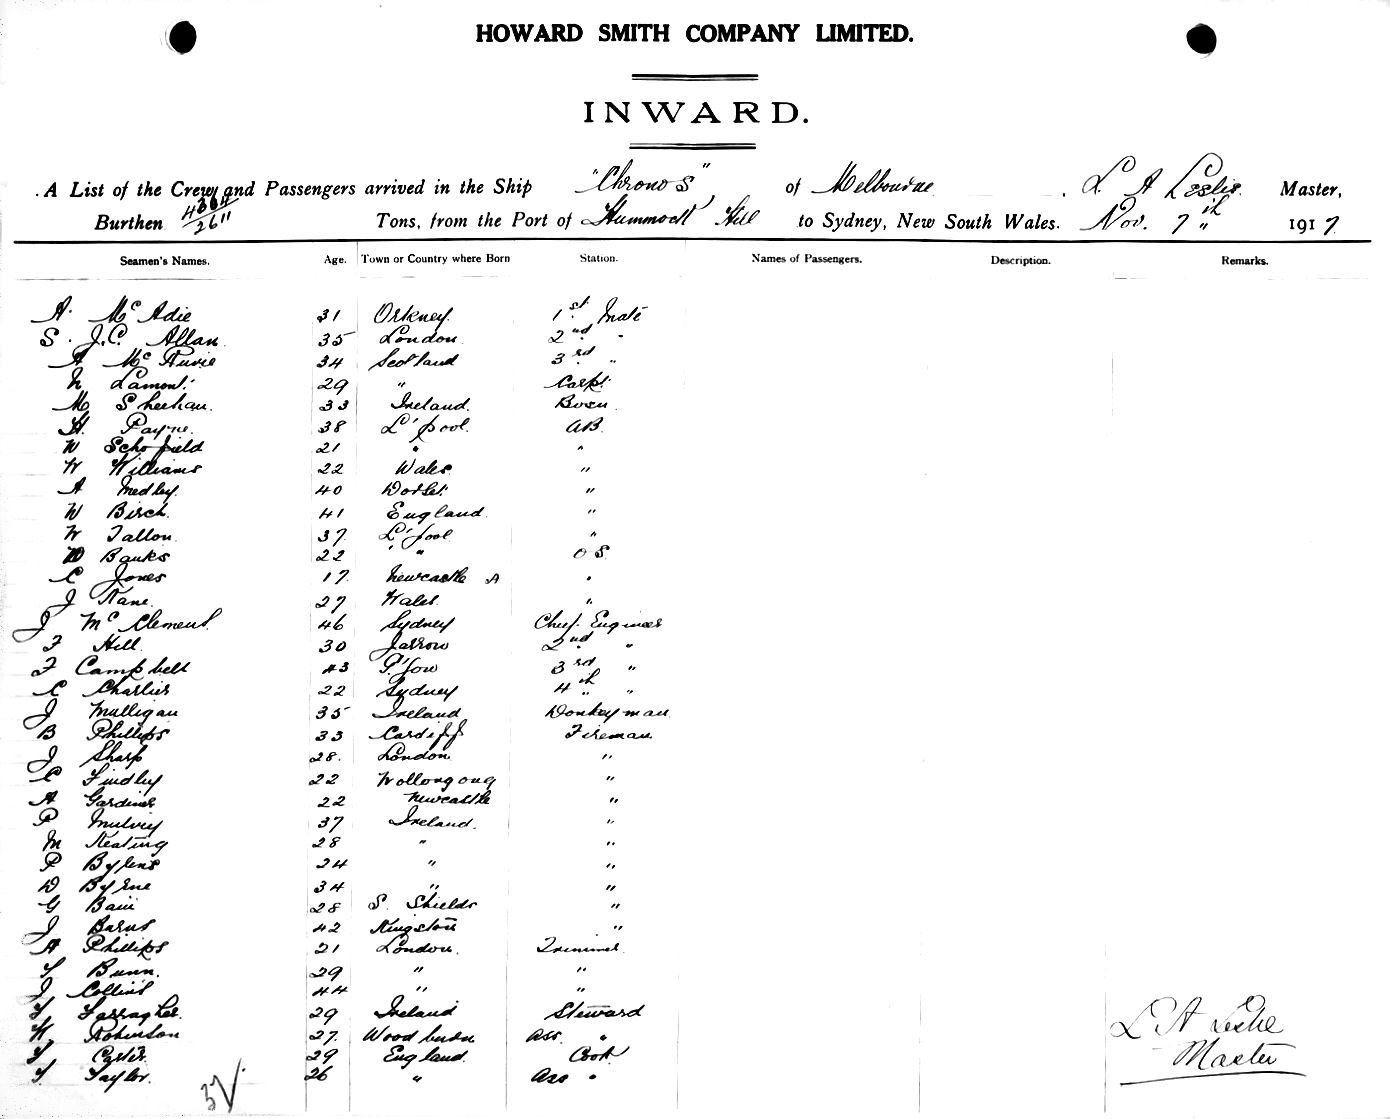 HOWARD SMITH COMPANY LIMITED.
INWARD.
A List of the Crew and Passengers arrived in the Ship "Chronos" of Melbourne L A Leslie Master,
Burthen 4364/2611 Tons, from the Port of Hummock Hill to Sydney, New South Wales. Nov. 7th 1917.
Seamen's Names. Age. Town or Country where Born Station. Names of Passengers. Description. Remarks.
A. Mc Adie 31 Orkney 1st Mate
S. J.C. Allan 35 London 2nd "
A Mc 34 Scotland 3rd "
N Lamont 29 " Carpt.
M Sheehan 33 Ireland. Bosn
H. Payne. 38 L'pool. AB.
W Schofield 21 " "
W Williams 22 Wales "
A Medley. 40 Dorset "
W Birch. 41 England. "
W Tallon. 37 L'pool "
D Banks 22 " OS.
C Jones 17 Newcastle A "
J Kane. 27 Wales. "
J McClement. 46 Sydney Chief Engineer
F Hill. 30 Jarrow 2nd "
F Campbell 43 G'gow 3rd "
C Charlier 22 Sydney 4th "
J Mulligan 35 Ireland Donkeyman
B Phillips 33 Cardiff Fireman
J Sharp 28. London "
C Findley 22 Wollongong "
A Gardiner 22 Newcastle "
P Mulvey 37 Ireland. "
M Keating 28 " "
P Byrne 24 " "
D Byrne 34 " "
G Bain 28 S. Shields "
J Barns 42 Kingston "
A Phillips 21 London. Trimmer
T Bunn. 29 " "
J Collins 44 " "
T Farragher. 29 Ireland Steward
K Robinson 27. Woodburn Ass. "
T Carter. 29 England. Cook
T Taylor. 26 " Ass "
L A Leslie
Master
37